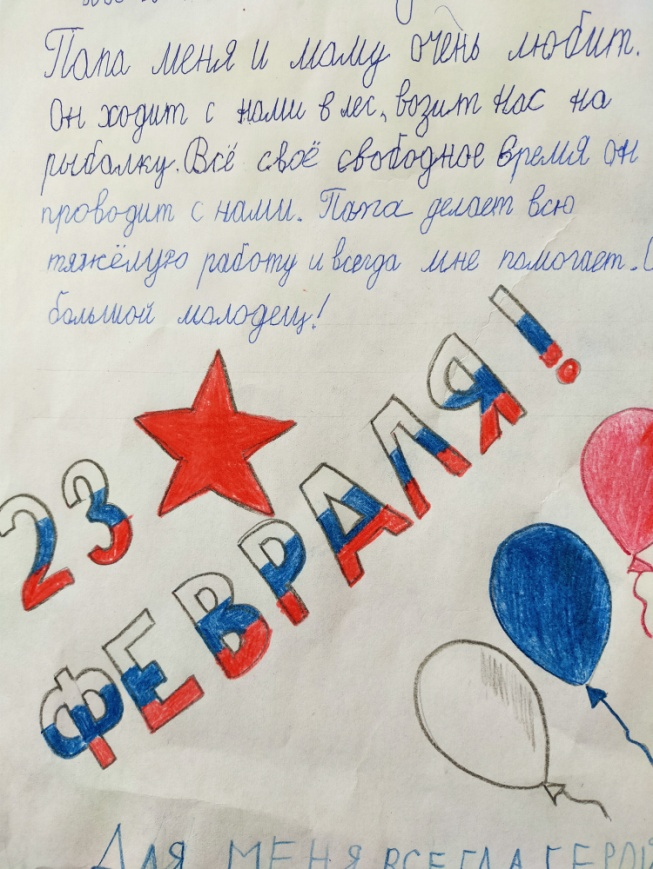 Папа меня и маму очень любит.
Он ходит с нами в лес, возит нас на
рыбалку. Всё своё свободное время он
проводит с нами. Папа делает всю
тяжёлую работу и всегда мне помогает.
большой молодец!
23
ФЕВРАЛЯ!
ДЛЯ МЕНЯ ВСЕГДА ГЕРОЙ